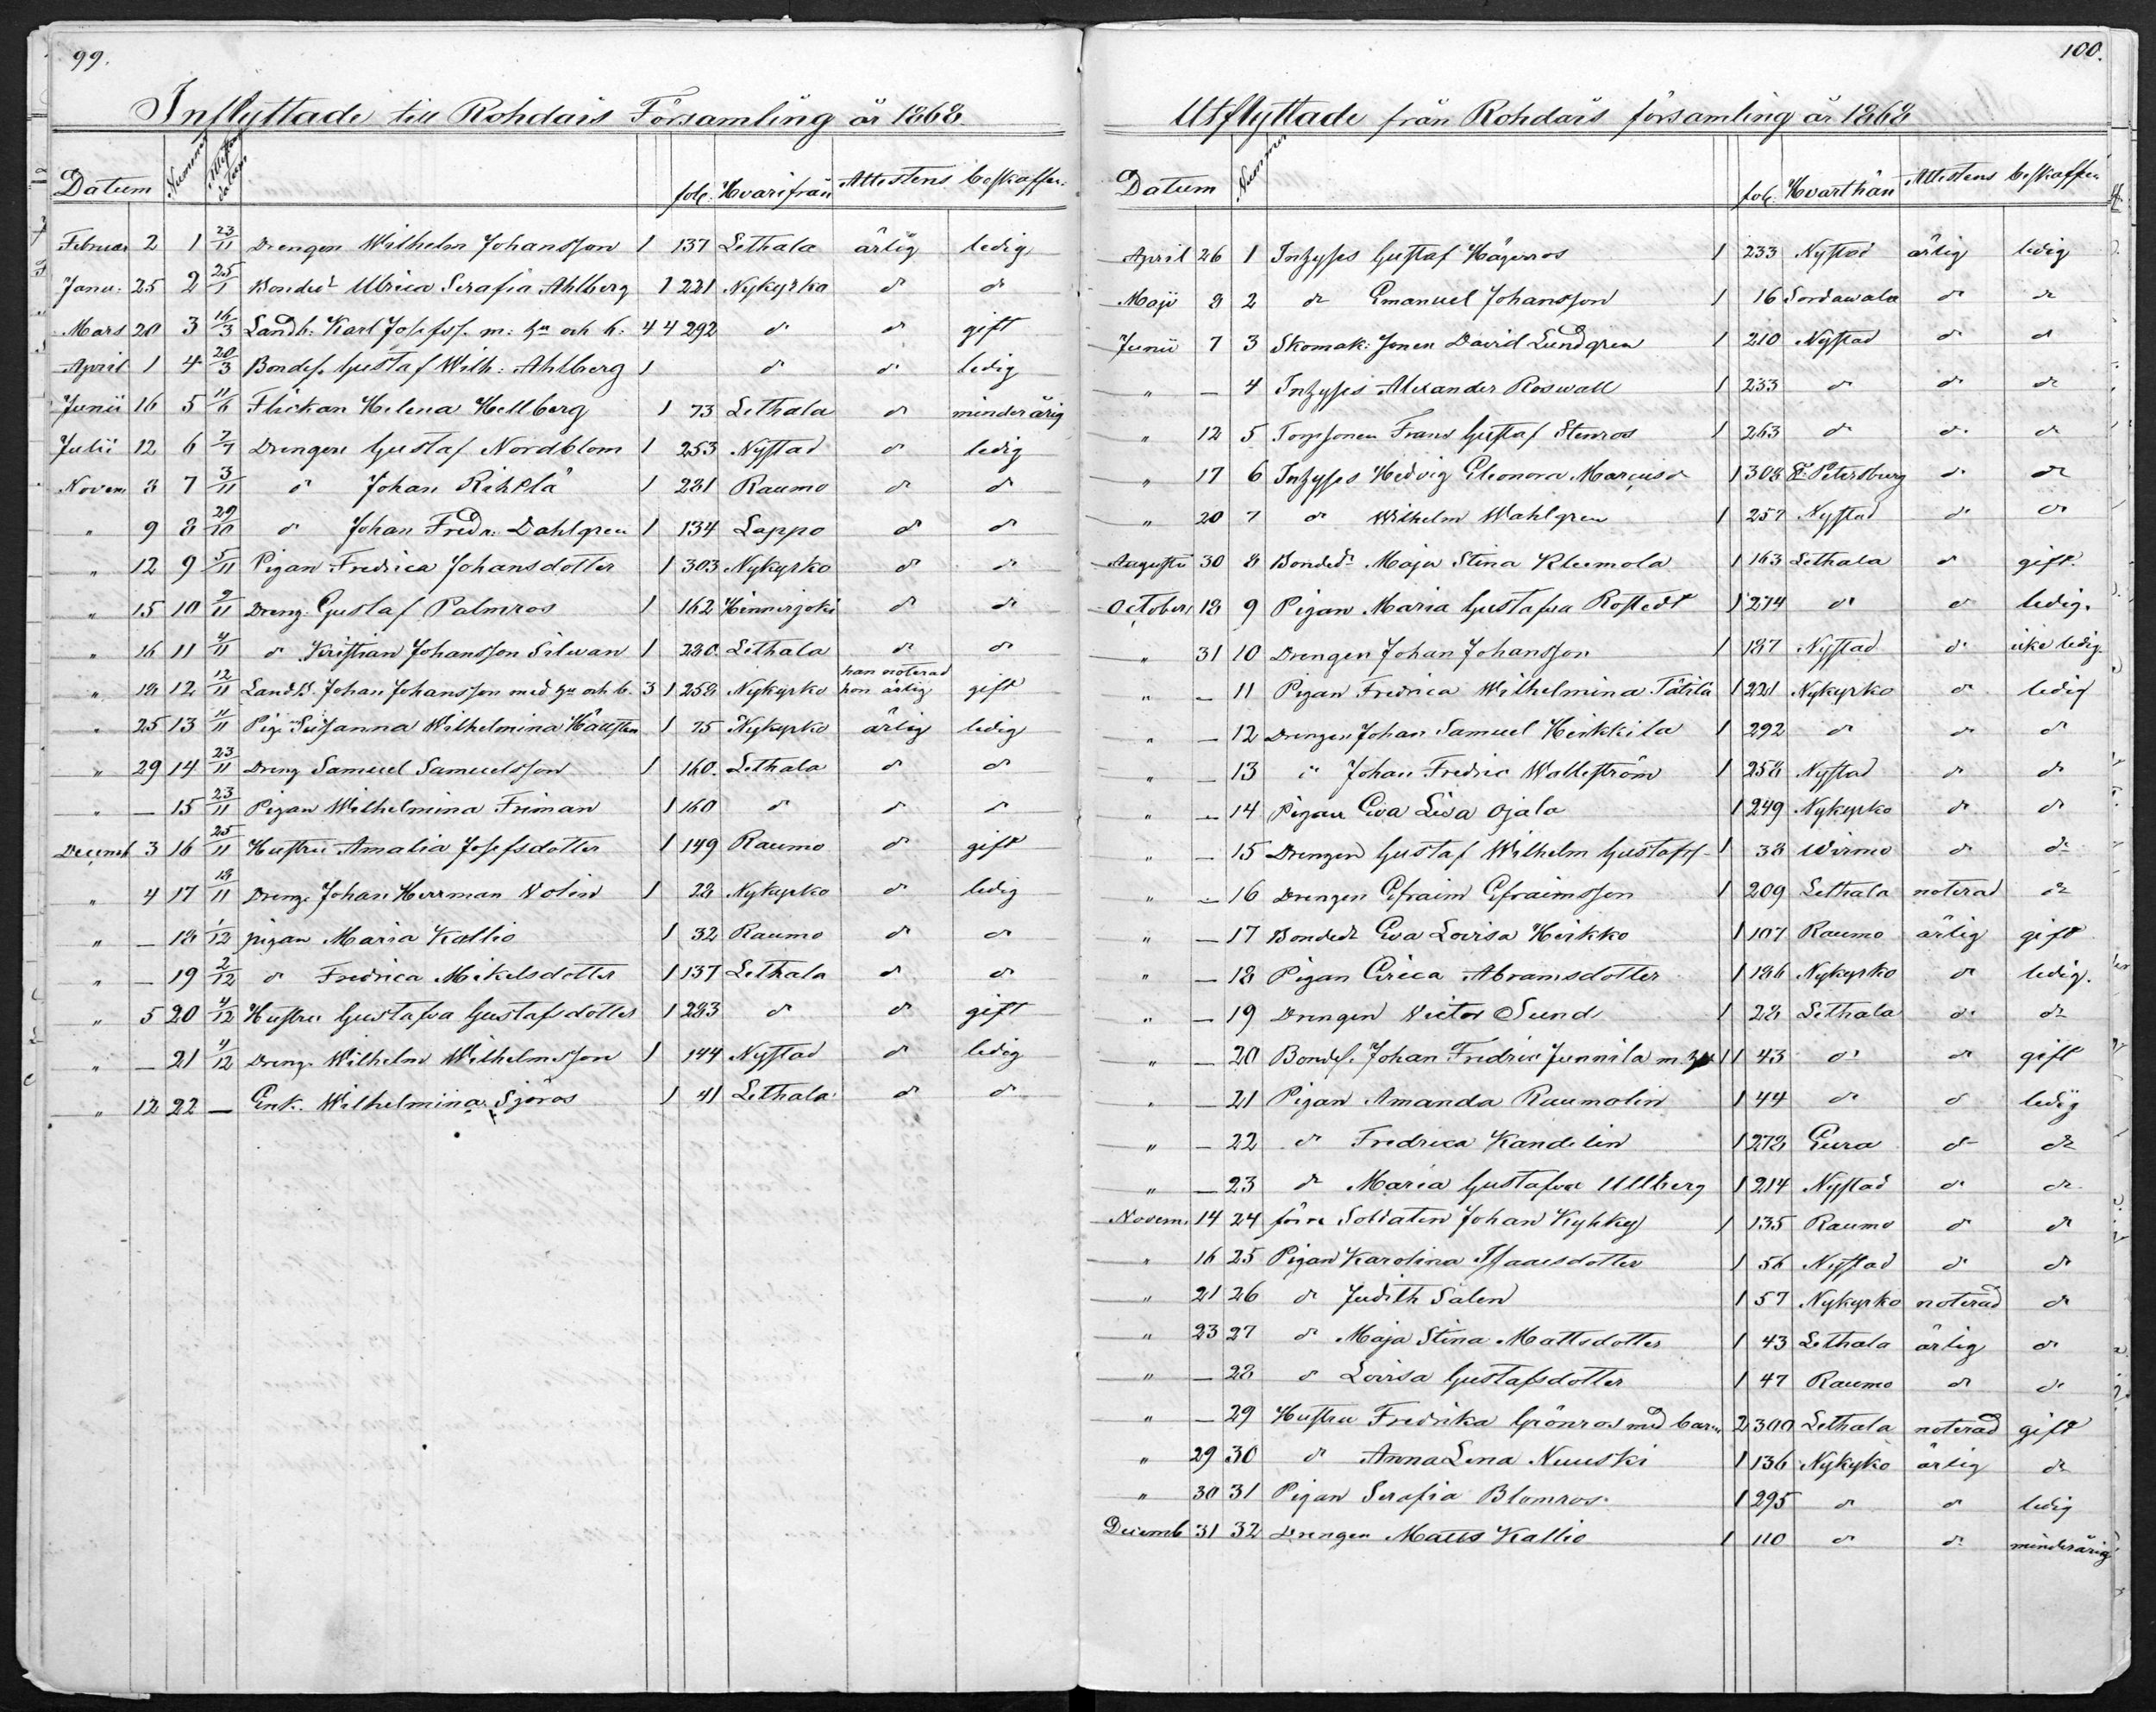 99.
Inflyttade till Rohdais Församling år 1868.
Datum Nummer Attestens datum fol: Hvarifrån Attestens beskaffen.
Februar 2 1 23/11 Drengen Wilhelm Johansson 1 137 Lethala ärlig ledig
Janu. 25 2 25/1 Bonded Ulrica Serafia Ahlberg 1 221 Nykyrko do do
Mars 20 3 16/3 Landb: Karl Josefss. m: hu och b. 4 4 292 do do gift
April 1 4 20/3 Bondes. Gustaf Wilh: Ahlberg 1 do do ledig
Junii 16 5 11/6 Flickan Helena Hellberg 1 73 Lethala do minderårig
Julii 12 6 7/7 Drengen Gustaf Nordblom 1 253 Nystad do ledig
Novem 8 7 3/11 do Johan Rihtlä 1 281 Raumo do do
" 9 8 29/10 do Johan Fredr: Dahlgren 1 134 Lappo do do
" 12 9 5/11 Pigan Fredrica Johansdotter 1 303 Nykyrko do do
" 15 10 9/11 Dreng. Gustaf Palmros 1 162 Hinnerjoki do do
" 16 11 4/11 do Kristian Johansson Silwan 1 280. Lethala do do
" 18 12 12/11 Landb. Johan Johansson med hu och b. 3 1 258 Nykyrko han noterad hon ärlig gift
" 25 13 11/11 Pig. Susanna Wilhelmina Hällsten 1 75 Nykyrko ärlig ledig
" 29 14 23/11 Dreng Samuel Samuelsson 1 160. Lethala do do
" — 15 23/11 Pigan Wilhelmina Friman 1 160 do do do
Decemb 3 16 25/11 Hustru Amalia Josefsdotter 1 149 Raumo do gift
" 4 17 18/11 Dreng. Johan Herrman Nolin 1 28 Nykyrko do ledig
" — 18 1/12 pigan Maria Kallio 1 32 Raumo do do
" — 19 2/12 do Fredrica Mikelsdotter 1 137 Lethala do do
" 5 20 4/12 Hustru Gustafva Gustafsdotter 1 283 do do gift
" — 21 4/12 Dreng. Wilhelm Wilhelmsson 1 144 Nystad do ledig
" 12 22 — Enk. Wilhelmina Sjöros 1 41 Lethala do do
100.
Utflyttade från Rohdais församling år 1868
Datum Nummer fol: Hvarthän Attestens beskaffen
April 26 1 Inhyses Gustaf Hägerros 1 233 Nystad ärlig ledig
Maji 8 2 do Emanuel Johansson 1 16 Sordawala do do
Junii 7 3 Skomak: sonen David Lundgren 1 210 Nystad do do
" — 4 Inhyses Alexander Roswall 1 233 do do do
" 12 5 Torpsonen Frans Gustaf Stenros 1 263 do do do
" 17 6 Inhyses Hedvig Eleonora Marcusdr 1 308 St Petersburg do do
" 20 7 do Wilhelm Wahlgren 1 257 Nystad do do
Augusti 30 8 Bondedr Maja Stina Kleemola 1 163 Lethala do gift.
October 18 9 Pigan Maria Gustafva Rostedt 1 274 do do ledig.
" 31 10 Drengen Johan Johansson 1 187 Nystad do icke ledig.
" — 11 Pigan Fredrica Wilhelmina Tätilä 1 221 Nykyrko do ledig
" — 12 Drengen Johan Samuel Heikkila 1 292 do do do
" — 13 do Johan Fredric Walleström 1 258 Nystad do do
" — 14 Pigan Eva Lisa Ojala 1 249 Nykyrko do do
" — 15 Drengen Gustaf Wilhelm Gustafss- 1 38 Wirmo do do
" — 16 Drengen Efraim Efraimsson 1 209 Lethala noterad do
" — 17 Bondedr Eva Lovisa Heikko 1 107 Raumo ärlig gift
" — 18 Pigan Erica Abramsdotter 1 186 Nykyrko do ledig.
" — 19 Drengen Victor Sund 1 28 Lethala do do
" — 20 Bondes. Johan Fredric Junnila m. hu 1 1 43 do do gift
" — 21 Pigan Amanda Raumolin 1 44 do do ledig
" — 22 do Fredrica Kandelin 1 278 Eura do do
" — 23 do Maria Gustafva Ullberg 1 214 Nystad do do
Novem. 14 24 förre Soldaten Johan Kyhky 1 135 Raumo do do
" 16 25 Pigan Karolina Isaacsdotter 1 56 Nystad do do
" 21 26 do Judith Salen 1 57 Nykyrko noterad do
" 23 27 do Maja Stina Mattsdotter 1 43 Lethala ärlig do
" — 28 do Lovisa Gustafsdotter 1 47 Raumo do do
" — 29 Hustru Fredrika Grönros med barn 2 300 Lethala noterad gift
" 29 30 do Anna Lena Nuuski 1 136 Nykyko ärlig do
" 30 31 Pigan Serafia Blomros. 1 295 do do ledig
Decemb 31 32 Drengen Matts Kallio 1 110 do do minderårig